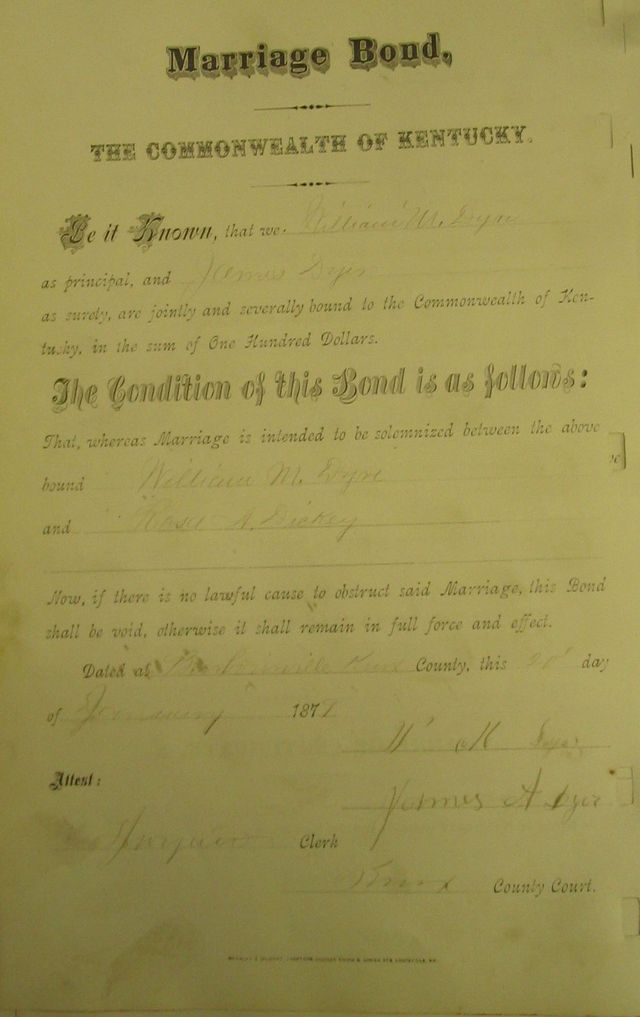 Marriage Bond,
THE COMMONWEALTH OF KENTUCKY.
Be it Known, that we William M. Dyre
as principal, and James Dyer
as surety, are jointly and severally bound to the Commonwealth of Ken-
tucky, in the sum of One Hundred Dollars.
The Condition of this Bond is as follows:
That, whereas Marriage is intended to be solemnized between the above
bound William M. Dyre
and A. Dickey
Now, if there is no lawful cause to obstruct said Marriage, this Bond
shall be void, otherwise it shall remain in full force and effect.
Dated at Barbourville Knox County, this day
of January 187
W M Dyer
Attest: James A Dyer
Clerk
Knox County Court.